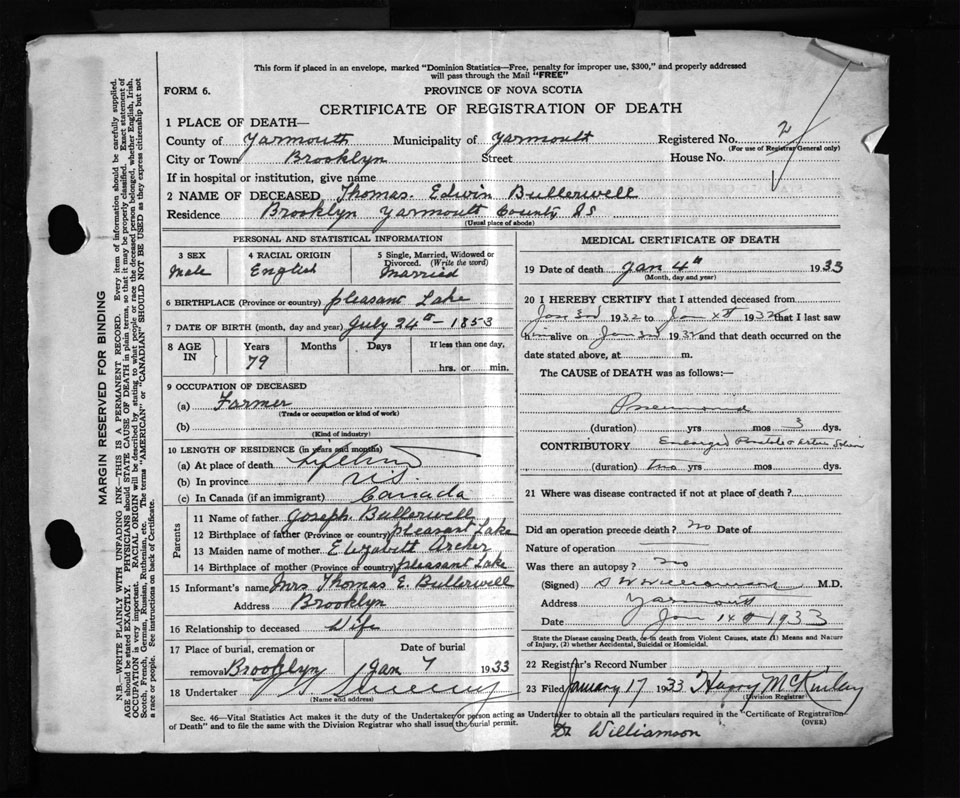 This form if placed in an envelope, marked "Dominion Statistics—Free, penalty for improper use, $300," and properly addressed
will pass through the Mail "FREE"
FORM 6.
PROVINCE OF NOVA SCOTIA
CERTIFICATE OF REGISTRATION OF DEATH
1 PLACE OF DEATH—
County of Yarmouth Municipality of Yarmouth Registered No. 2
(For use of Registrar General only)
City or Town Brooklyn Street House No.
If in hospital or institution, give name
2 NAME OF DECEASED Thomas. Edwin Bullerwell
Residence Brooklyn Yarmouth County NS
(Usual place of abode)
PERSONAL AND STATISTICAL INFORMATION
3 SEX 4 RACIAL ORIGIN 5 Single, Married, Widowed or
Divorced. (Write the word)
Male English Married
6 BIRTHPLACE (Province or country) pleasant Lake
7 DATE OF BIRTH (month, day and year) July 24th - 1853
8 AGE IN Years Months Days If less than one day,
79 hrs. or min.
9 OCCUPATION OF DECEASED
(a) Farmer
(Trade or occupation or kind of work)
(b)
(Kind of industry)
10 LENGTH OF RESIDENCE (in years and months)
(a) At place of death
(b) In province N.S.
(c) In Canada (if an immigrant) Canada
Parents
11 Name of father Joseph. Bullerwell
12 Birthplace of father (Province or country) pleasant Lake
13 Maiden name of mother Elezabeth Archer
14 Birthplace of mother (Province or country) pleasant Lake
15 Informant's name Mrs Thomas E. Bullerwell
Address Brooklyn
16 Relationship to deceased Wife
17 Place of burial, cremation or Date of burial
removal Brooklyn Jan 7 1933
18 Undertaker Sweeny
(Name and address)
MEDICAL CERTIFICATE OF DEATH
19 Date of death Jan 4th 1933
(Month, day and year)
20 I HEREBY CERTIFY that I attended deceased from
Jan 3rd 1932 to Jan 1932 that I last saw
him alive on Jan 3rd 1932 and that death occurred on the
date stated above, at m.
The CAUSE of DEATH was as follows:—
Pneumonia
(duration) yrs mos 3 dys.
CONTRIBUTORY Enlarged
(duration) two yrs mos dys.
21 Where was disease contracted if not at place of death?
Did an operation precede death? no Date of
Nature of operation
Was there an autopsy? no
(Signed) S W Williamson M.D.
Address Yarmouth
Date Jan 14th 1933
State the Disease causing Death, or in death from Violent Causes, state (1) Means and Nature
of Injury, (2) whether Accidental, Suicidal or Homicidal.
22 Registrar's Record Number
23 Filed January 17 1933 Harry McKinlay
(Division Registrar)
Sec. 46—Vital Statistics Act makes it the duty of the Undertaker or person acting as Undertaker to obtain all the particulars required in the "Certificate of Registration
of Death" and to file the same with the Division Registrar who shall issue the burial permit.
(OVER)
Dr Williamson
MARGIN RESERVED FOR BINDING
N.B.—WRITE PLAINLY WITH UNFADING INK—THIS IS A PERMANENT RECORD. Every item of information should be carefully supplied.
AGE should be stated EXACTLY. PHYSICIANS should STATE CAUSE OF DEATH in plain terms, so that it may be properly classified. Exact statement of
OCCUPATION is very important. RACIAL ORIGIN will be described by stating to what people or race the deceased person belonged, whether English, Irish,
Scotch, French, German, Russian, Ruthenian, etc. The terms "AMERICAN" or "CANADIAN" SHOULD NOT BE USED as they express citizenship but not
a race or people. See instructions on back of Certificate.